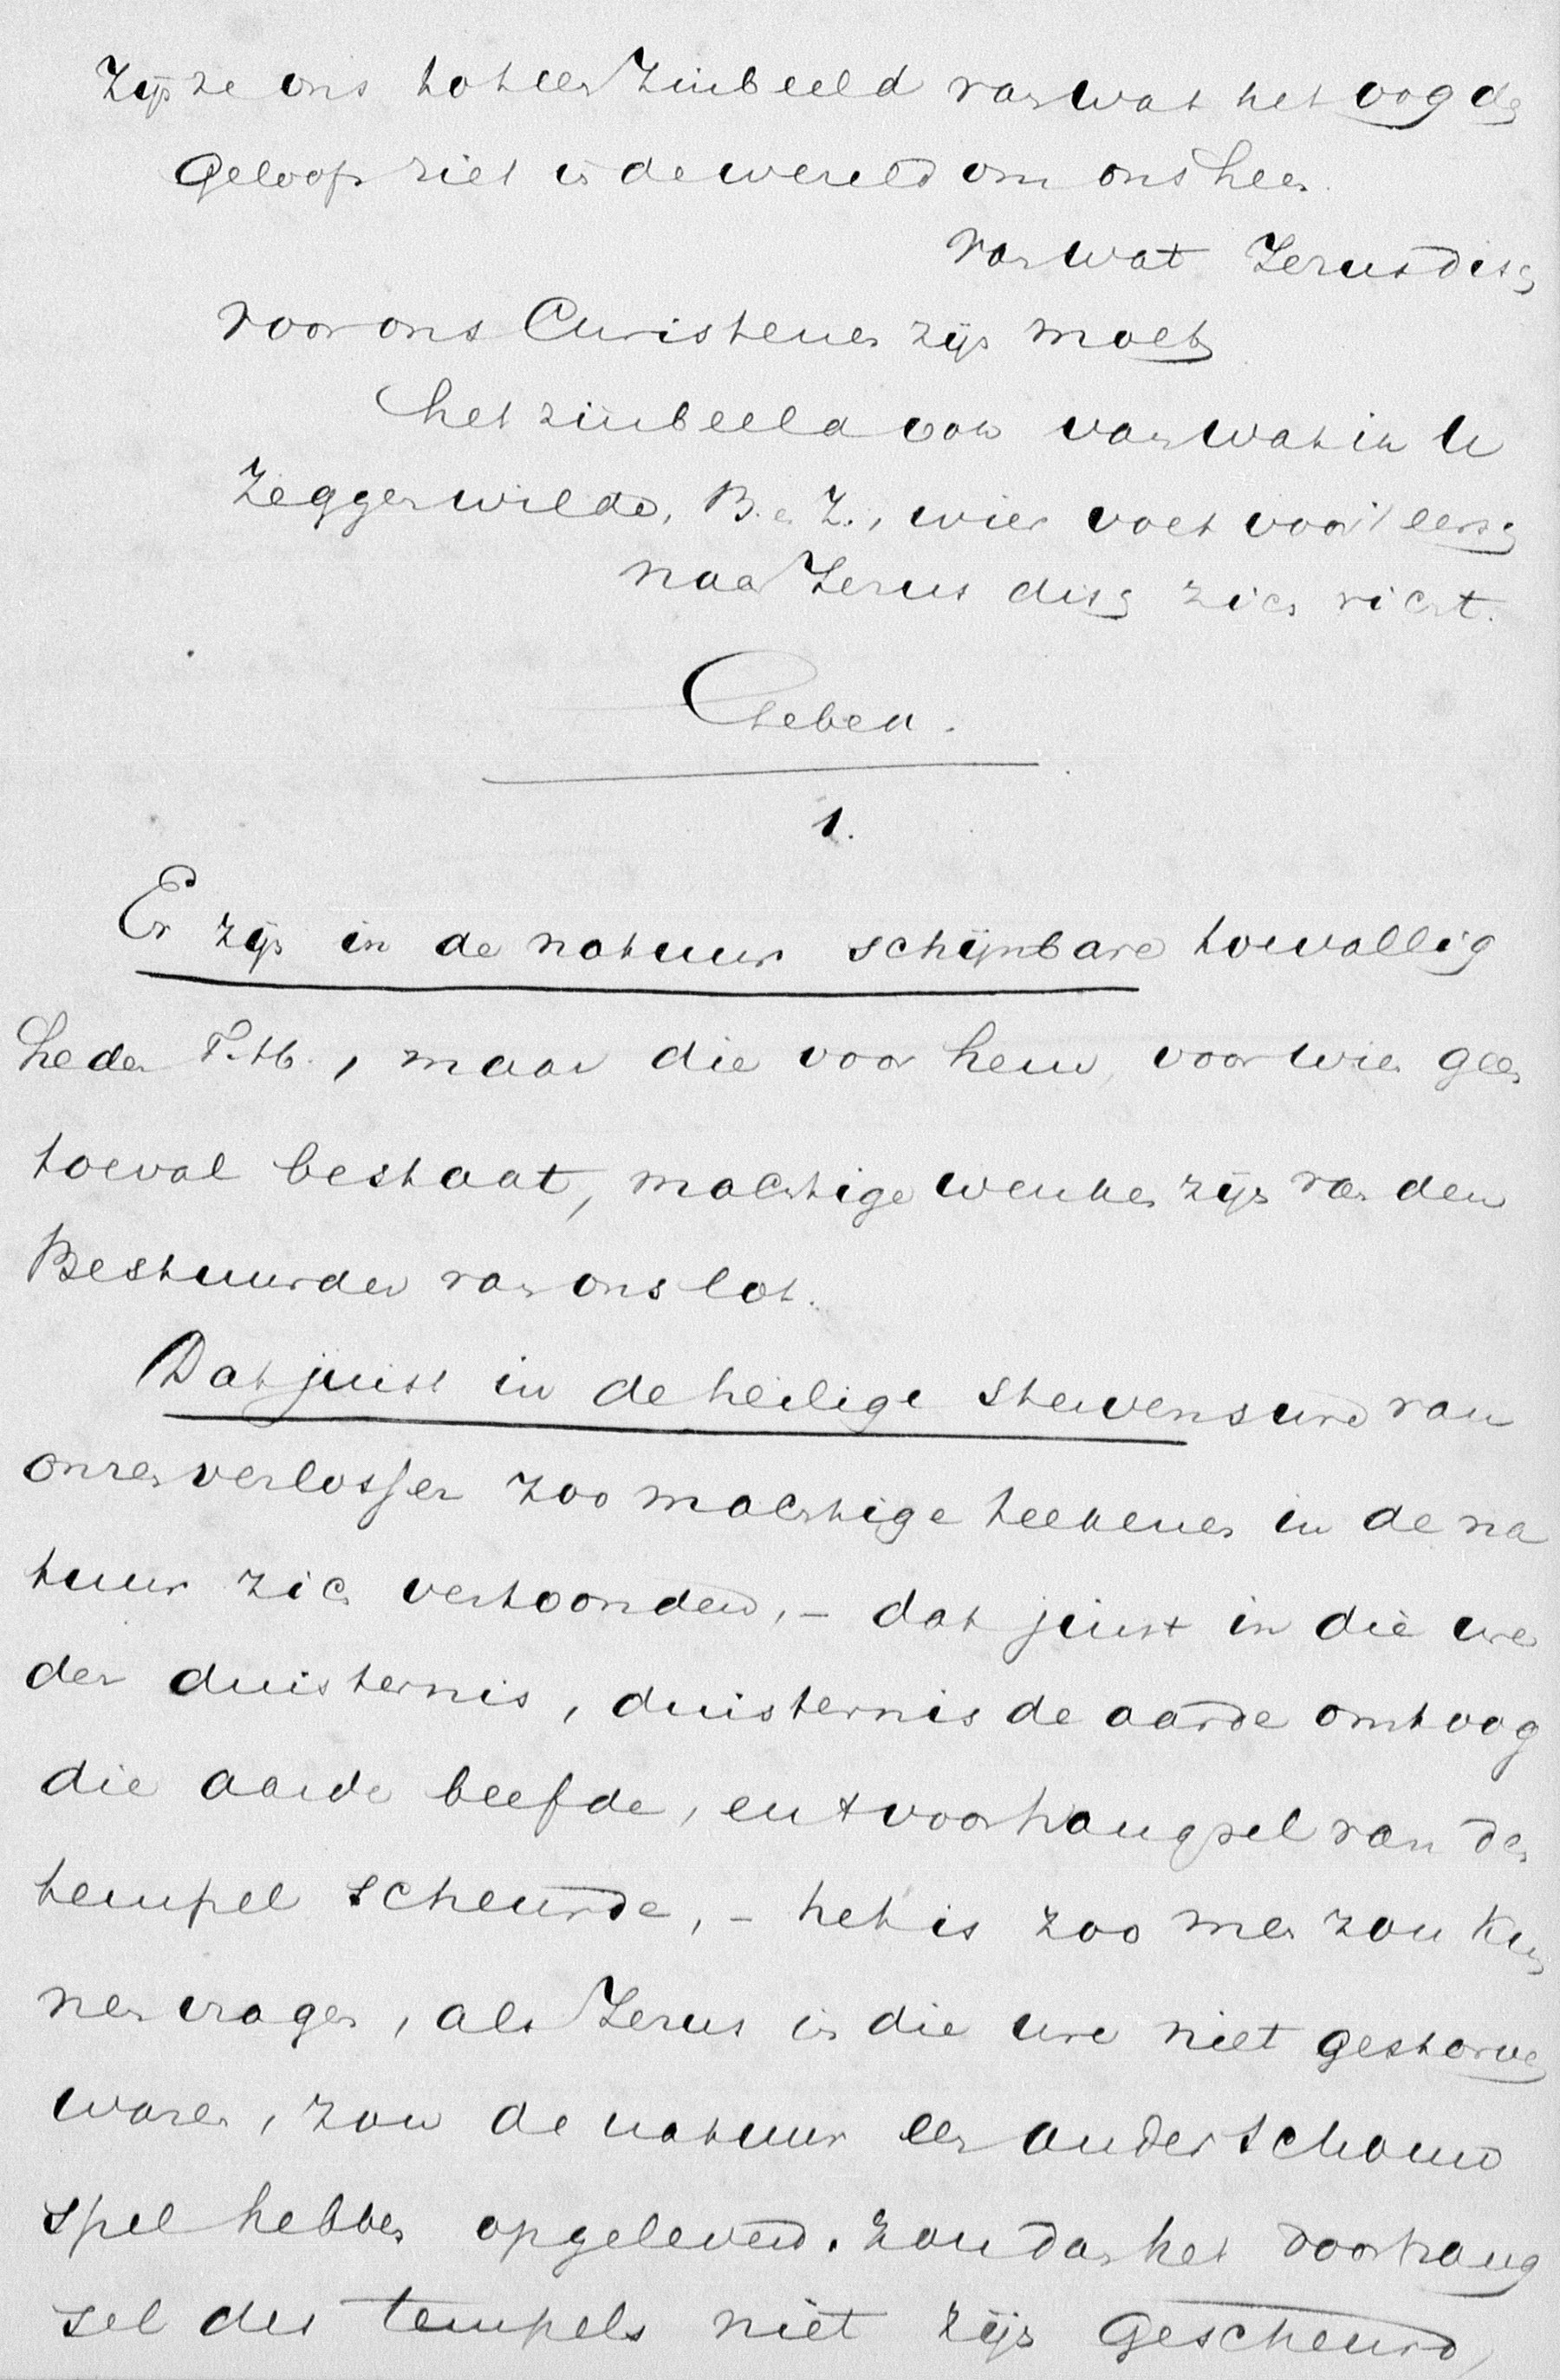 Zij ze ons tot een zinbeeld van wat het oog des
geloofs ziet in de wereld om ons heen.
van wat Jezus disch
voor ons Christenen zijn moet
het zinbeeld ook van wat ik U
zeggen wilde, B. e. Z., wier voet voor 't eerst
naar Jezus disch zich richt.
Gebed.
1.
Er zijn in de natuur schijnbare toevallig
heden T. H., maar die voor hem, voor wien geen
toeval bestaat, machtige wenken zijn van den
Bestuurder van ons lot.
Dat juist in de heilige stervensure van
onzen verlosser zoo machtige teekenen in de na
tuur zich vertoonden, – dat juist in die ure
der duisternis, duisternis de aarde omtoog
die aarde beefde, en 't voorhangsel van den
tempel scheurde, – het is zoo men zou kun
nen vragen, als Jezus in die ure niet gestorven
ware, zou de natuur een ander schouw
spel hebben opgeleverd. zou dan het voorhang
sel des tempels niet zijn gescheurd,